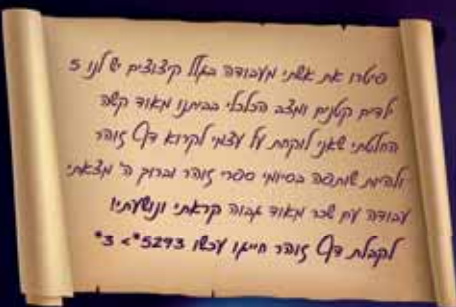 פיטרו את אשתי מעבודה בגלל קיצוצים יש לנו 5
ילדים קטנים ומצב הכלכלי בביתנו מאוד קשה
החלטתי שאני לוקחת על עצמי לקרוא דף זוהר
ולהיות שותפה בסיומי ספרי זוהר וברוך ה' מצאתי
עבודה עם שכר מאוד גבוה קראתי ונושעתי!
לקבלת דף זוהר חייגו עכשו 5293* > 3*